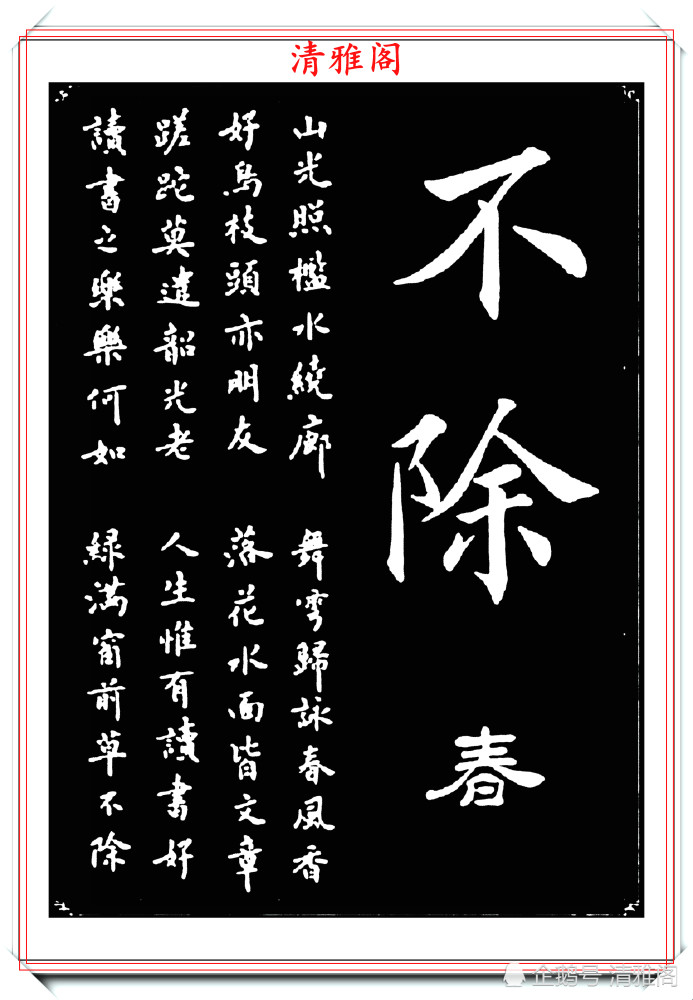 清雅阁
不除
春
山光照檻水繞廊
舞雩歸詠春風香
好鳥枝頭亦朋友
落花水面皆文章
蹉跎莫遣韶光老
人生惟有讀書好
讀書之樂樂何如
緑滿窗前草不除
企鹅号 清雅阁